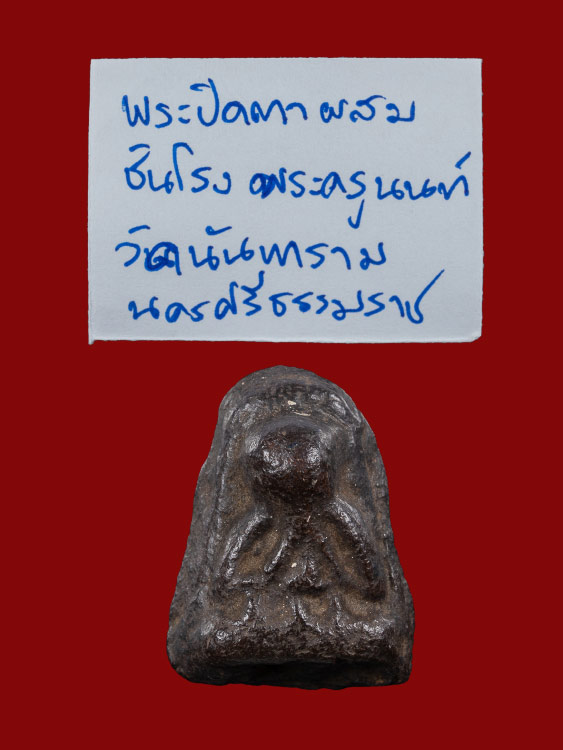 พระปิดตา ผสม
ชันโรง พระครูนนท์
วัดนันทาราม
นครศรีธรรมราช